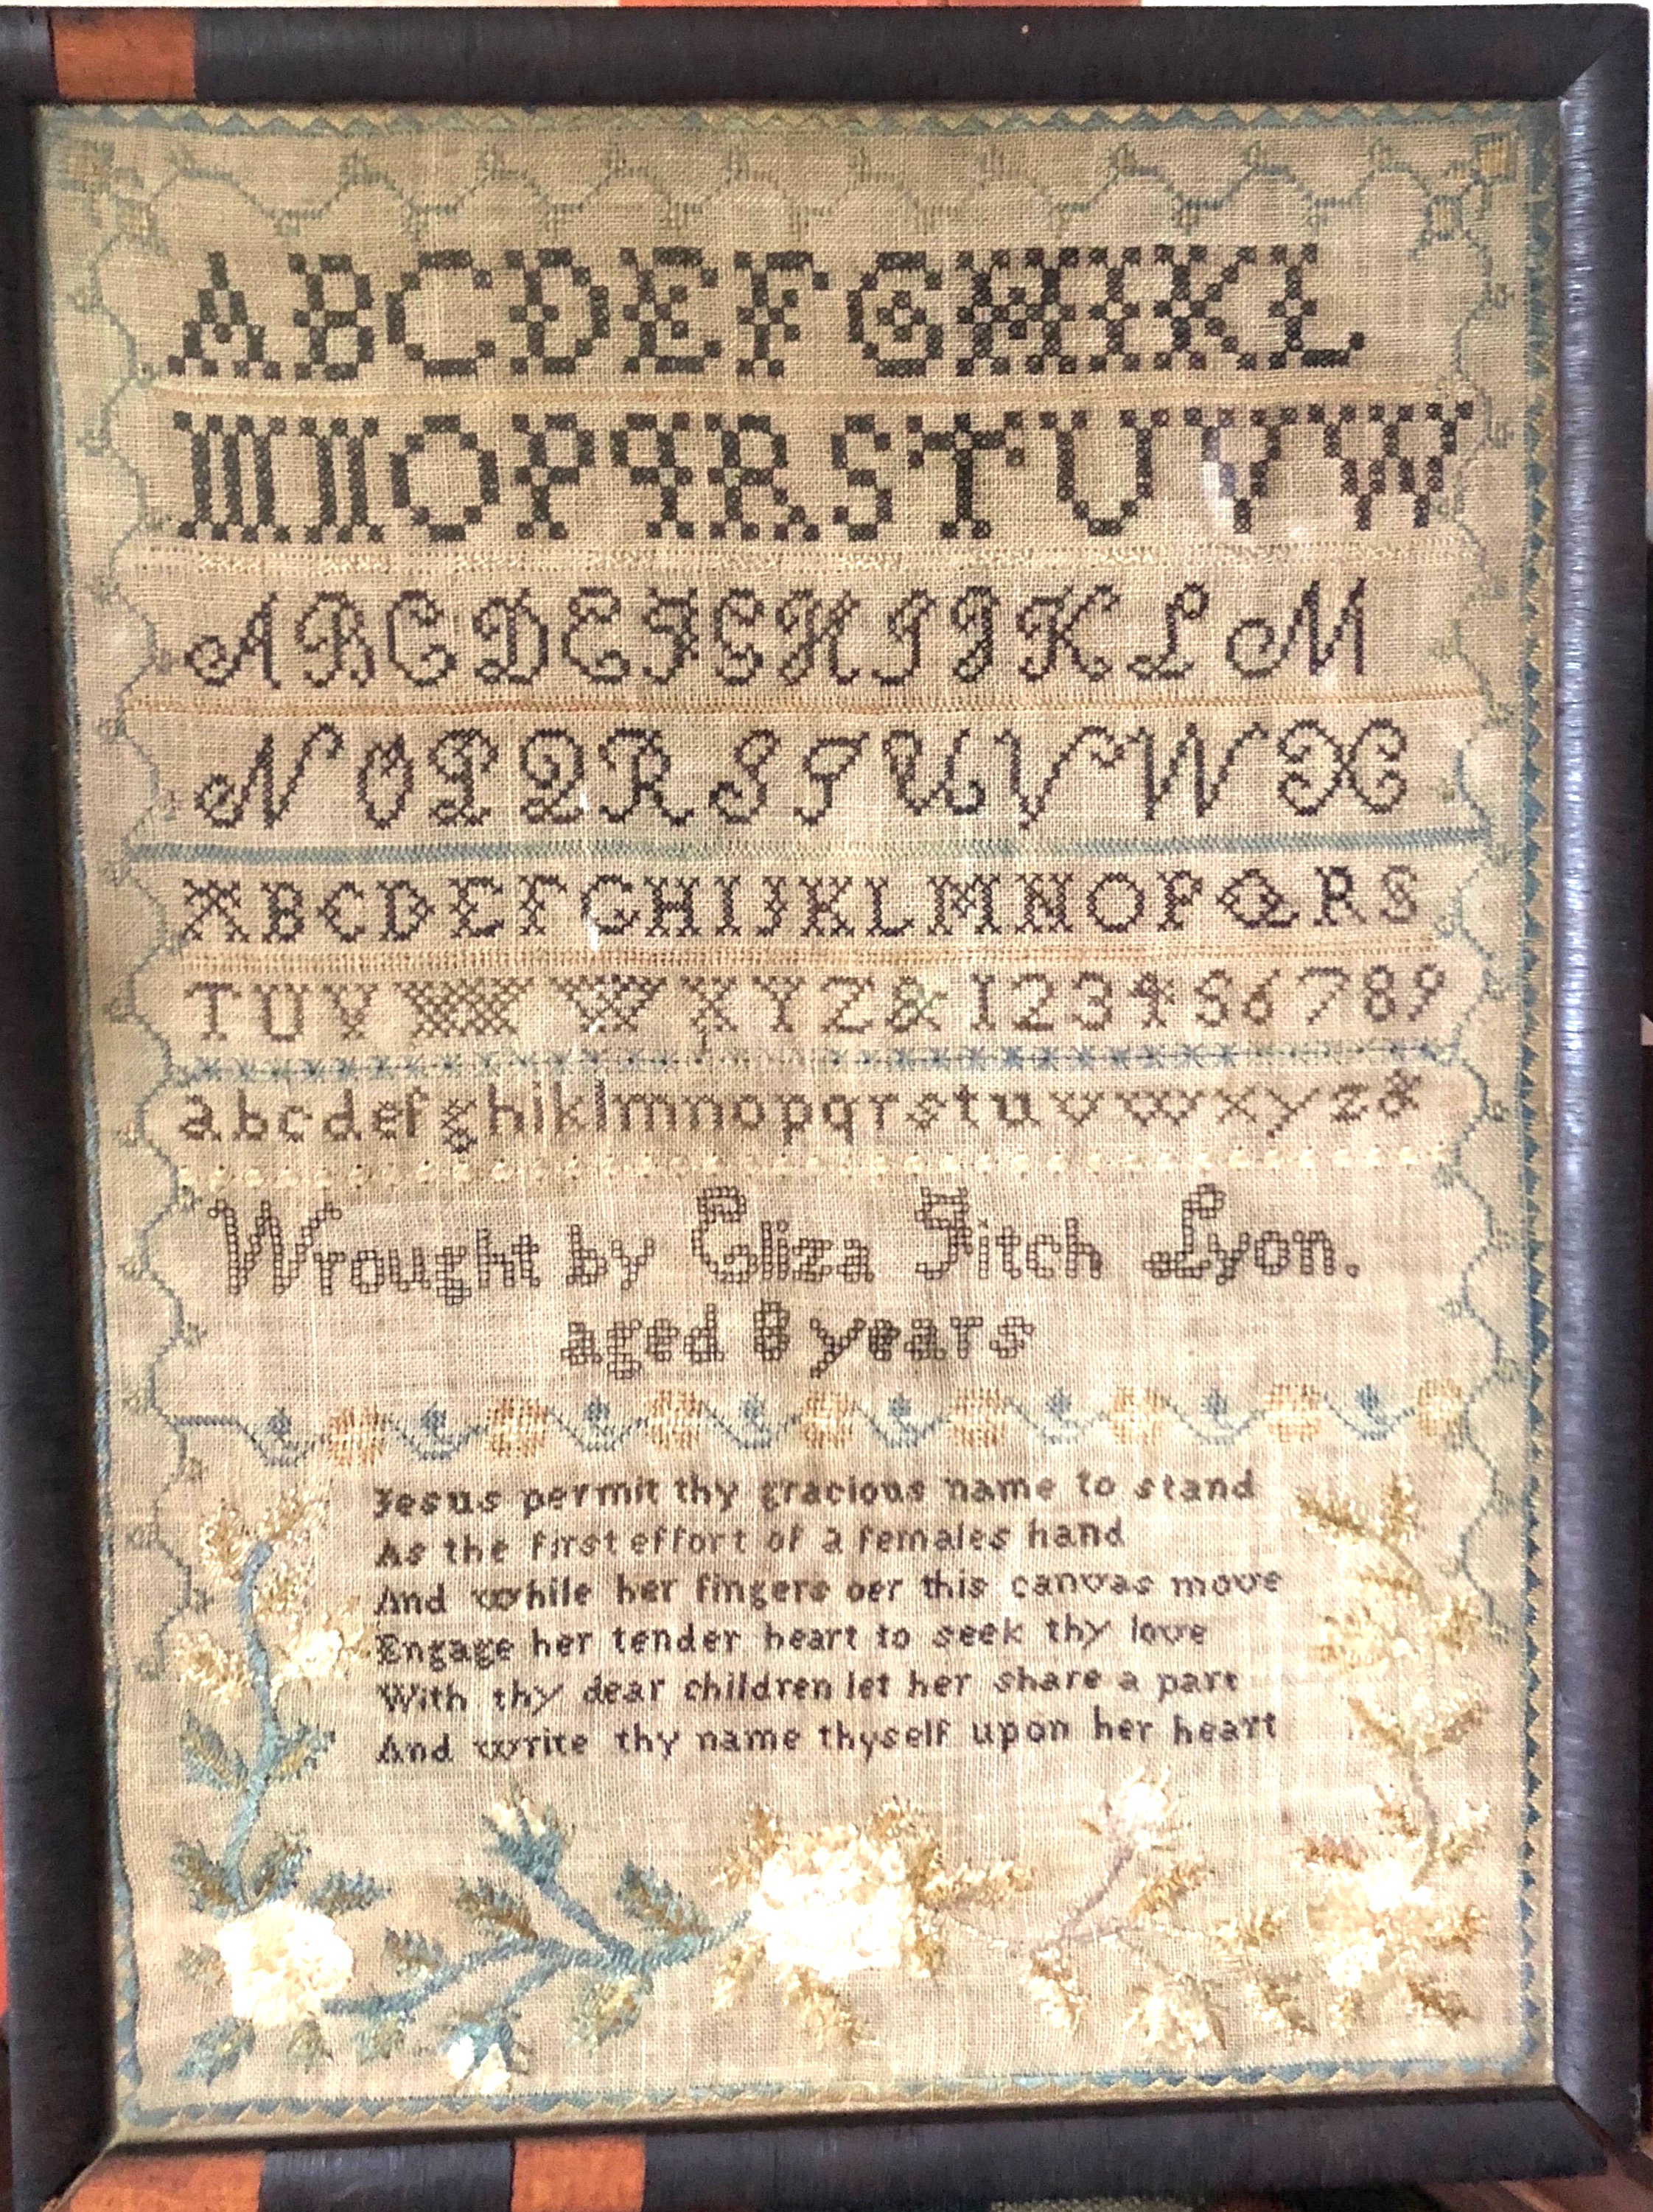 A B C D E F G H I K L
M N O P Q R S T U V W
A B C D E F G H I J K L M
N O P Q R S T U V W X
A B C D E F G H I J K L M N O P Q R S
T U V W X Y Z & 1 2 3 4 5 6 7 8 9
a b c d e f g h i k l m n o p q r s t u v w x y z &
Wrought by Eliza Fitch Lyon.
aged 8 years
Jesus permit thy gracious name to stand
As the first effort of a females hand
And while her fingers oer this canvas move
Engage her tender heart to seek thy love
With thy dear children let her share a part
And write thy name thyself upon her heart